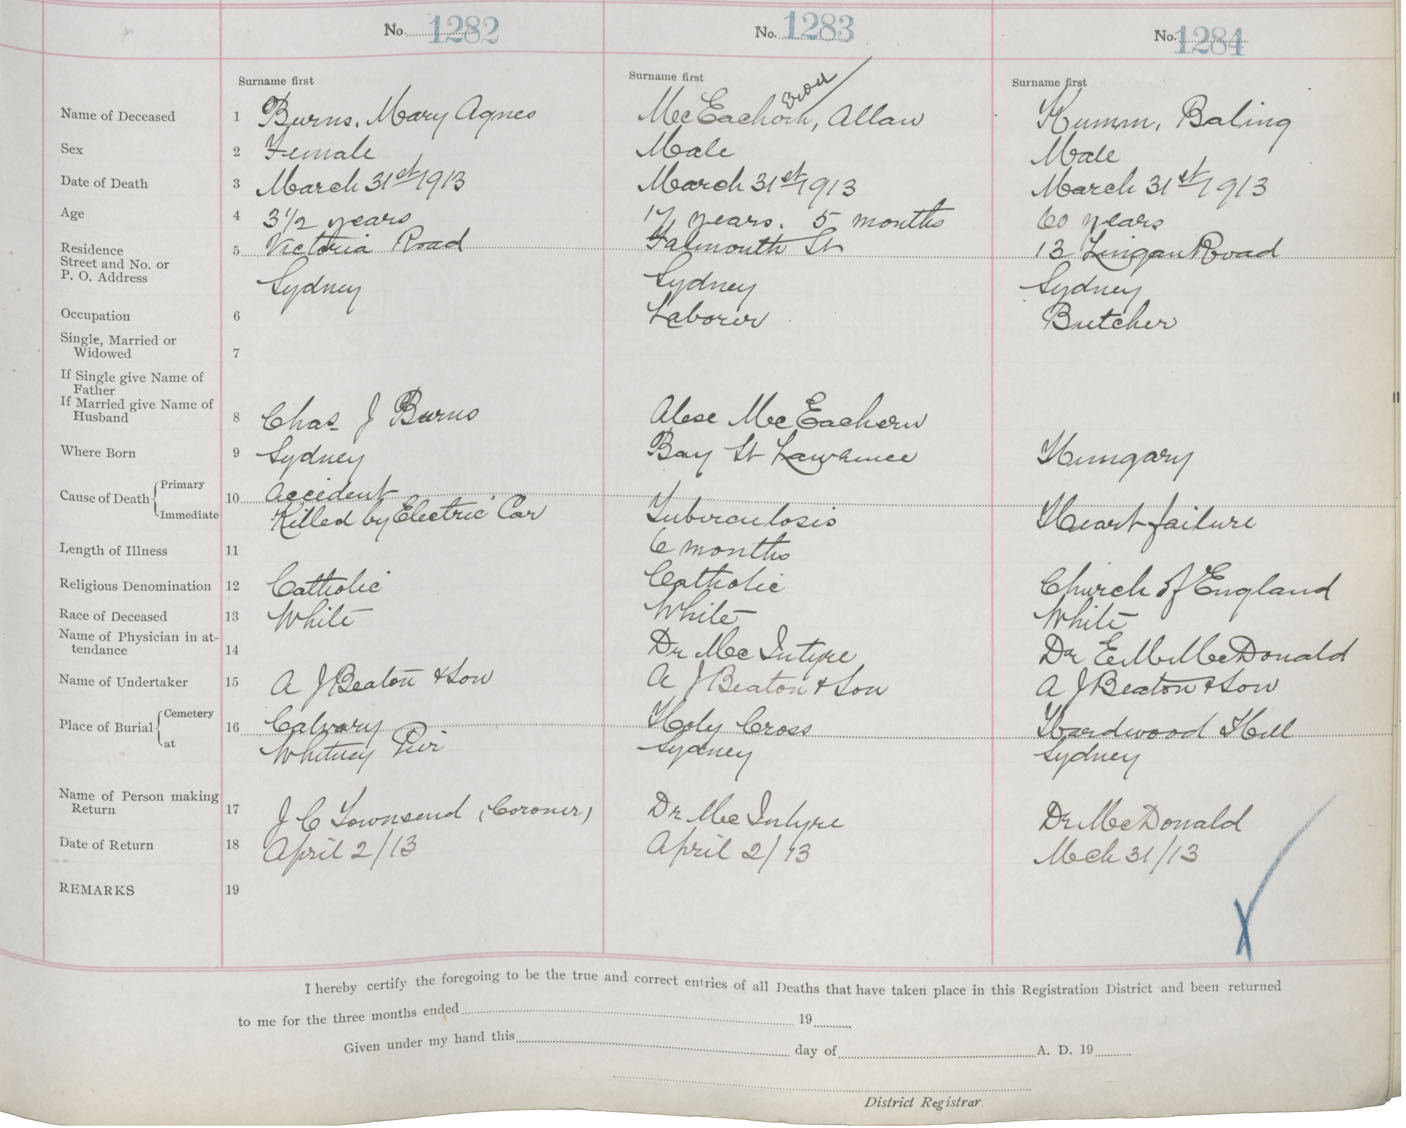 No. 1282 No. 1283 No. 1284
Surname first Surname first Surname first
Name of Deceased 1 Burns, Mary Agnes McEachern, Allan Kumm, Baling
Sex 2 Female Male Male
Date of Death 3 March 31st 1913 March 31st 1913 March 31st 1913
Age 4 3 1/2 years 17 years. 5 months 60 years
Residence Street and No. or P. O. Address 5 Victoria Road Falmouth St 13 Lingan Road
Sydney Sydney Sydney
Occupation 6 Laborer Butcher
Single, Married or Widowed 7
If Single give Name of Father
If Married give Name of Husband 8 Chas J Burns McEachern
Where Born 9 Sydney Bay St Lawrence Hungary
Cause of Death Primary 10 Accident
Immediate Killed by Electric Car Tuberculosis Heart failure
Length of Illness 11 6 months
Religious Denomination 12 Catholic Catholic Church of England
Race of Deceased 13 White White White
Name of Physician in attendance 14 Dr McIntyre Dr E M McDonald
Name of Undertaker 15 A J Beaton & Son A J Beaton & Son A J Beaton & Son
Place of Burial Cemetery 16 Calvary Holy Cross Hardwood Hill
at Whitney Pier Sydney Sydney
Name of Person making Return 17 J C Townsend (Coroner) Dr McIntyre Dr McDonald
Date of Return 18 April 2/13 April 2/13 Mch 31/13
REMARKS 19
I hereby certify the foregoing to be the true and correct entries of all Deaths that have taken place in this Registration District and been returned
to me for the three months ended 19
Given under my hand this day of A. D. 19
District Registrar.